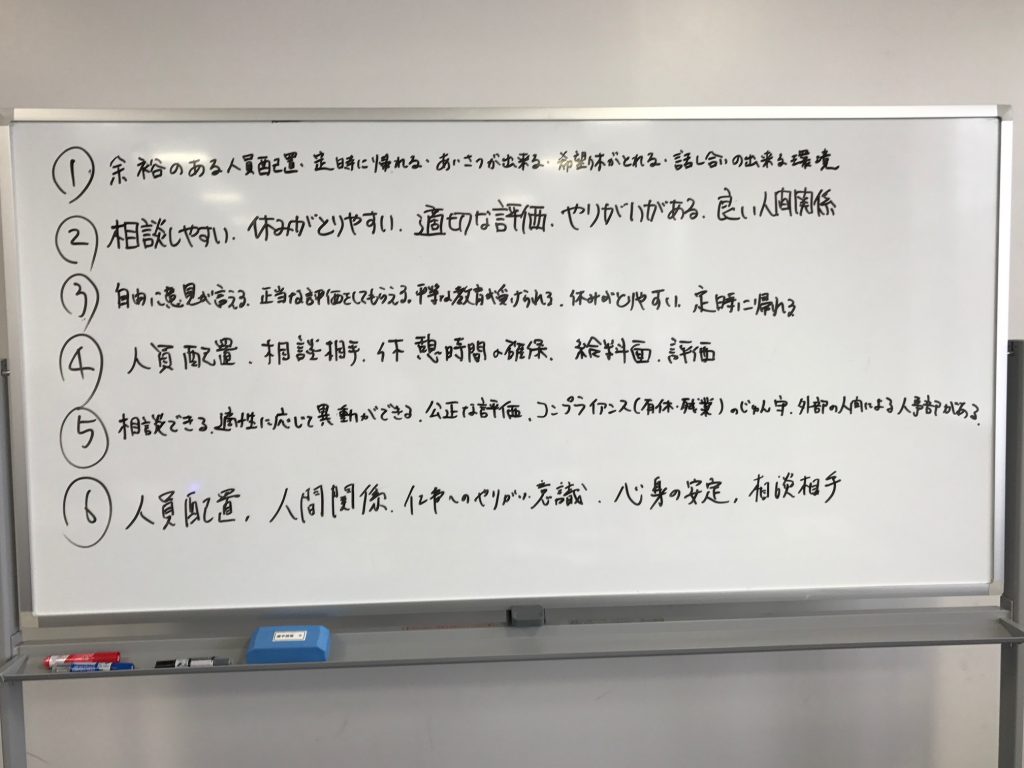 ① 余裕のある人員配置・定時に帰れる・あいさつが出来る・希望休がとれる・話し合いの出来る環境
② 相談しやすい、休みがとりやすい、適切な評価、やりがいがある、良い人間関係
③ 自由に意見が言える、正当な評価をしてもらえる、平等な教育が受けられる、休みがとりやすい、定時に帰れる
④ 人員配置、相談相手、休憩時間の確保、給料面、評価
⑤ 相談できる、適性に応じて異動ができる、公正な評価、コンプライアンス(有休・残業)のじゅん守、外部の人間による人事部がある、
⑥ 人員配置、人間関係、仕事へのやりがい・意識、心身の安定、相談相手